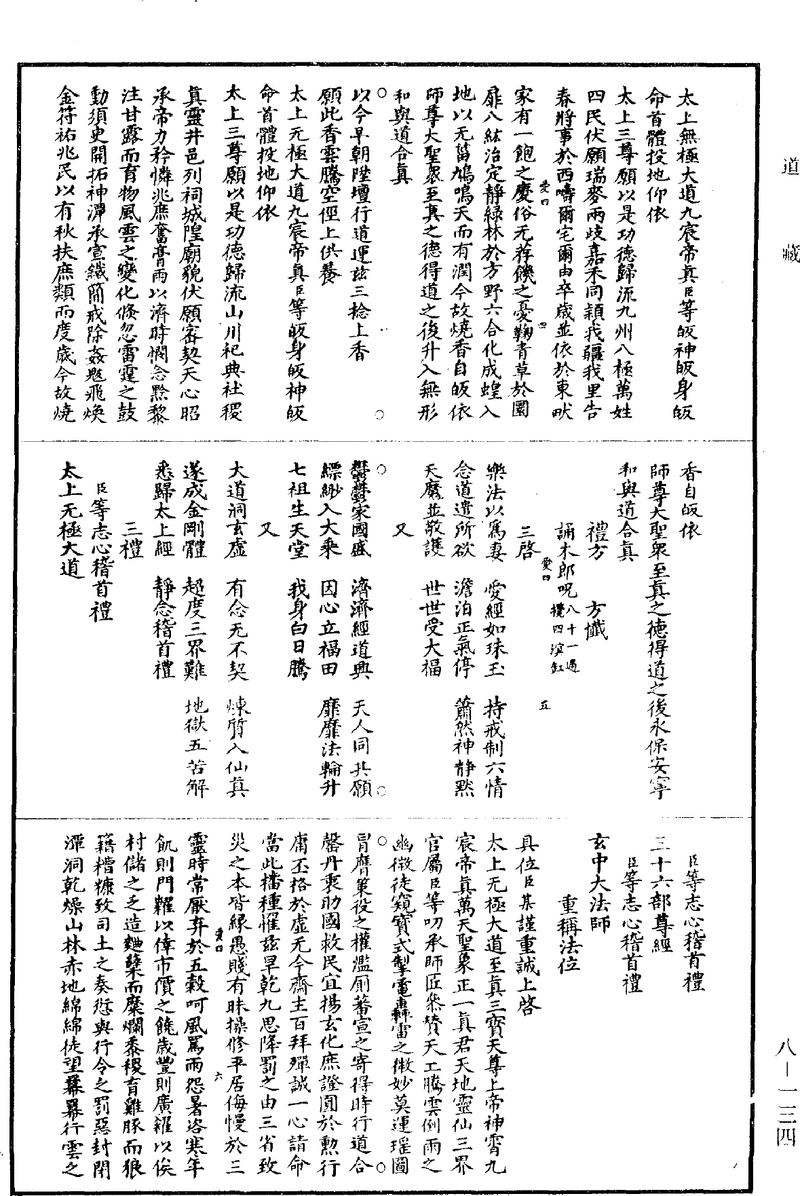 道藏
太上無極大道九宸帝真臣等皈神皈身皈
命首體投地仰依
太上三尊願以是功德歸流九州八極萬姓
四民伏願瑞麥兩歧嘉禾同穎我疆我里告
春將事於西疇爾宅爾田卒歲並依於東畎
家有一飽之慶俗无荐饑之憂鞠青草於圜
愛四
四
扉八紘治定靜綠林於方野六合化成蝗入
地以无菑鳩鳴天而有潤今故燒香自皈依
師尊大聖衆至真之德得道之後升入無形
和與道合真
以今早朝陞壇行道運茲三捻上香
願此香雲騰空徑上供養
太上无極大道九宸帝真臣等皈身皈神皈
命首體投地仰依
太上三尊願以是功德歸流山川祀典社稷
真靈井邑列祠城隍廟貌伏願審契天心昭
承帝力矜憐兆庶奮膏雨以濟時憫念黔黎
注甘露而育物風雲之變化倏忽雷霆之鼓
動須臾開拓神潭承宣鐵簡戒除姦慝飛煥
金符祐兆民以有秋扶庶類而度歲今故燒
香自皈依
師尊大聖衆至真之德得道之後永保安寧
和與道合真
禮方　方懺
誦木郎呪八十一過攪四溟缸
愛四
五
三啓
樂法以爲妻　愛經如珠玉　持戒制六情
念道遣所欲　澹泊正氣停　蕭然神靜默
天魔並敬護　世世受大福
又
鬱鬱家國盛　濟濟經道興　天人同其願
縹緲入大乘　因心立福田　靡靡法輪升
七祖生天堂　我身白日騰
又
大道洞玄虛　有念无不契　煉質入仙真
遂成金剛體　超度三界難　地獄五苦解
悉歸太上經　靜念稽首禮
三禮
臣等志心稽首禮
太上无極大道
臣等志心稽首禮
三十六部尊經
臣等志心稽首禮
玄中大法師
重稱法位
具位臣某謹重誠上啓
太上无極大道至真三寶天尊上帝神霄九
宸帝真萬天聖衆正一真君天地靈仙三界
官屬臣等叨承師匠叅贊天工騰雲倒雨之
幽微徒窺寶式掣電轟雷之微妙莫運瑤圖
冐膺策役之權濫厠蕃宣之寄得時行道合
磬丹衷助國救民宜揚玄化庶證圓於勲行
庸丕格於虛无今齋主百拜殫誠一心請命
當此播種懼茲旱乾九思降罰之由三省致
災之本皆緣愚賤有昧操修平居侮慢於三
愛四
六
靈時常厭弃於五穀呵風罵雨怨暑咨寒年
飢則門糴以倖市價之饒歲豐則廣羅以俟
村儲之乏造麯糵而糜爛黍稷育雞豚而狼
籍糟糠致司土之奏愆與行令之罰惡封閉
潭洞乾燥山林赤地綿綿徒望羃羃行雲之
八—一三四